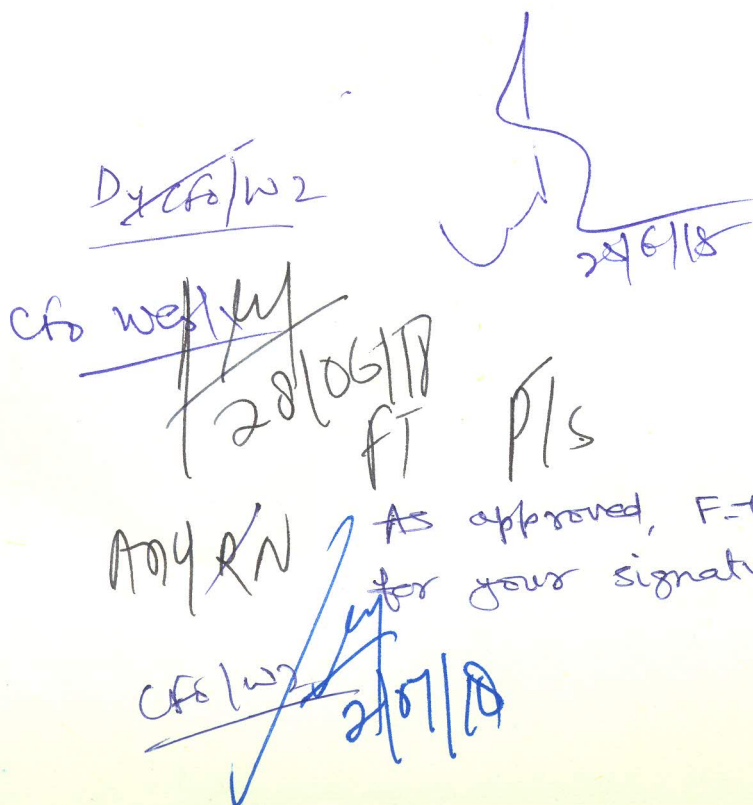 Dy CFO/W2
28/6/18
CFO
28/06/18
FT P/S
As approved, F-
for your signat
CFO/W2
2/07/18